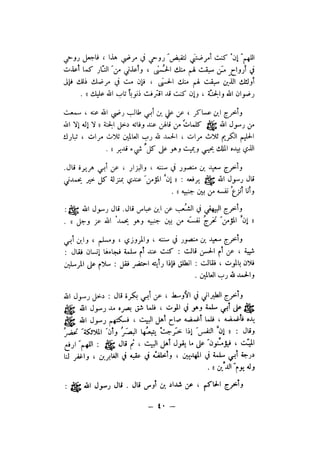 اللهمّ إنْ كنت أمرضتني لتقبضَ روحي في مرضي هذا ، فاجعل روحي
في أرواح من سبقت لهم منك الحُسنى ، وأعذني من النّار كما أعذت
أولئك الذين سبقت لهم منك الحسنى ، فإن مت في مرضك ذلك فإلى
رضوان الله والجنّة ، وإن كنت قد اقترفت ذنوباً تاب الله عليك » .
وأخرج ابن عساكر ، عن علي بن أبي طالب رضي الله عنه ، سمعت
من رسول الله ﷺ كلماتٍ من قالهن عند وفاته دخل الجنة « لا إله إلا الله
الحليم الكريم ثلاث مرات ، الحمد لله رب العالمين ثلاث مرات ، تبارك
الذي بيده الملك يحيي ويميت وهو على كلّ شيء قدير » .
وأخرج سعيد بن منصور في سننه ، والبزار ، عن أبي هريرة قال.
قال رسول الله ﷺ يرفعه : « إنَّ المؤمنَ عندي بمنزلة كل خير يحمدني
وأنا أنزعُ نفسه من بين جنبيه » .
وأخرج البيهقي في الشُّعب عن ابن عباس قال. قال رسول الله ﷺ :
« إنَّ المؤمنَ تَخرُجُ نفسَه من بين جنبيه وهو يحمدُ الله عز وجل » .
وأخرج سعيد بن منصور في سننه ، والمروزي ، ومسلم ، وابن أبي
شيبة ، عن أم الحسن قالت : كنت عند أم سلمة فجاءها إنسان فقال :
فلان بالموت ، فقالت : انطلق فإذا رأيته احتضر فقل : سلام على المرسلين
والحمد لله رب العالمين .
وأخرج الطبراني في الأوسط ، عن أبي بكرة قال : دخل رسول الله
ﷺ على أبي سلمة وهو في الموت ، فلما شق بصره مد رسول الله ﷺ
يده فأغمضه ، فلما أغمضه صاح أهل البيت ، فسكتهم رسول الله ﷺ
وقال : « إنّ النفسَ إذا خرَجتْ يتبعُها البصَرُ وأنّ الملائكةَ تحضُر
الميّت ، فيؤمّنُون على ما يقول أهل البيت ، ثم قال ﷺ : اللهمّ ارفع
درجة أبي سلمة في المهديين ، واخلفْه في عقبه في الغابرين ، واغفر لنا
وله يومَ الدّين » .
وأخرج الحاكم ، عن شداد بن أوس قال . قال رسول الله ﷺ :
— ٤٠ —